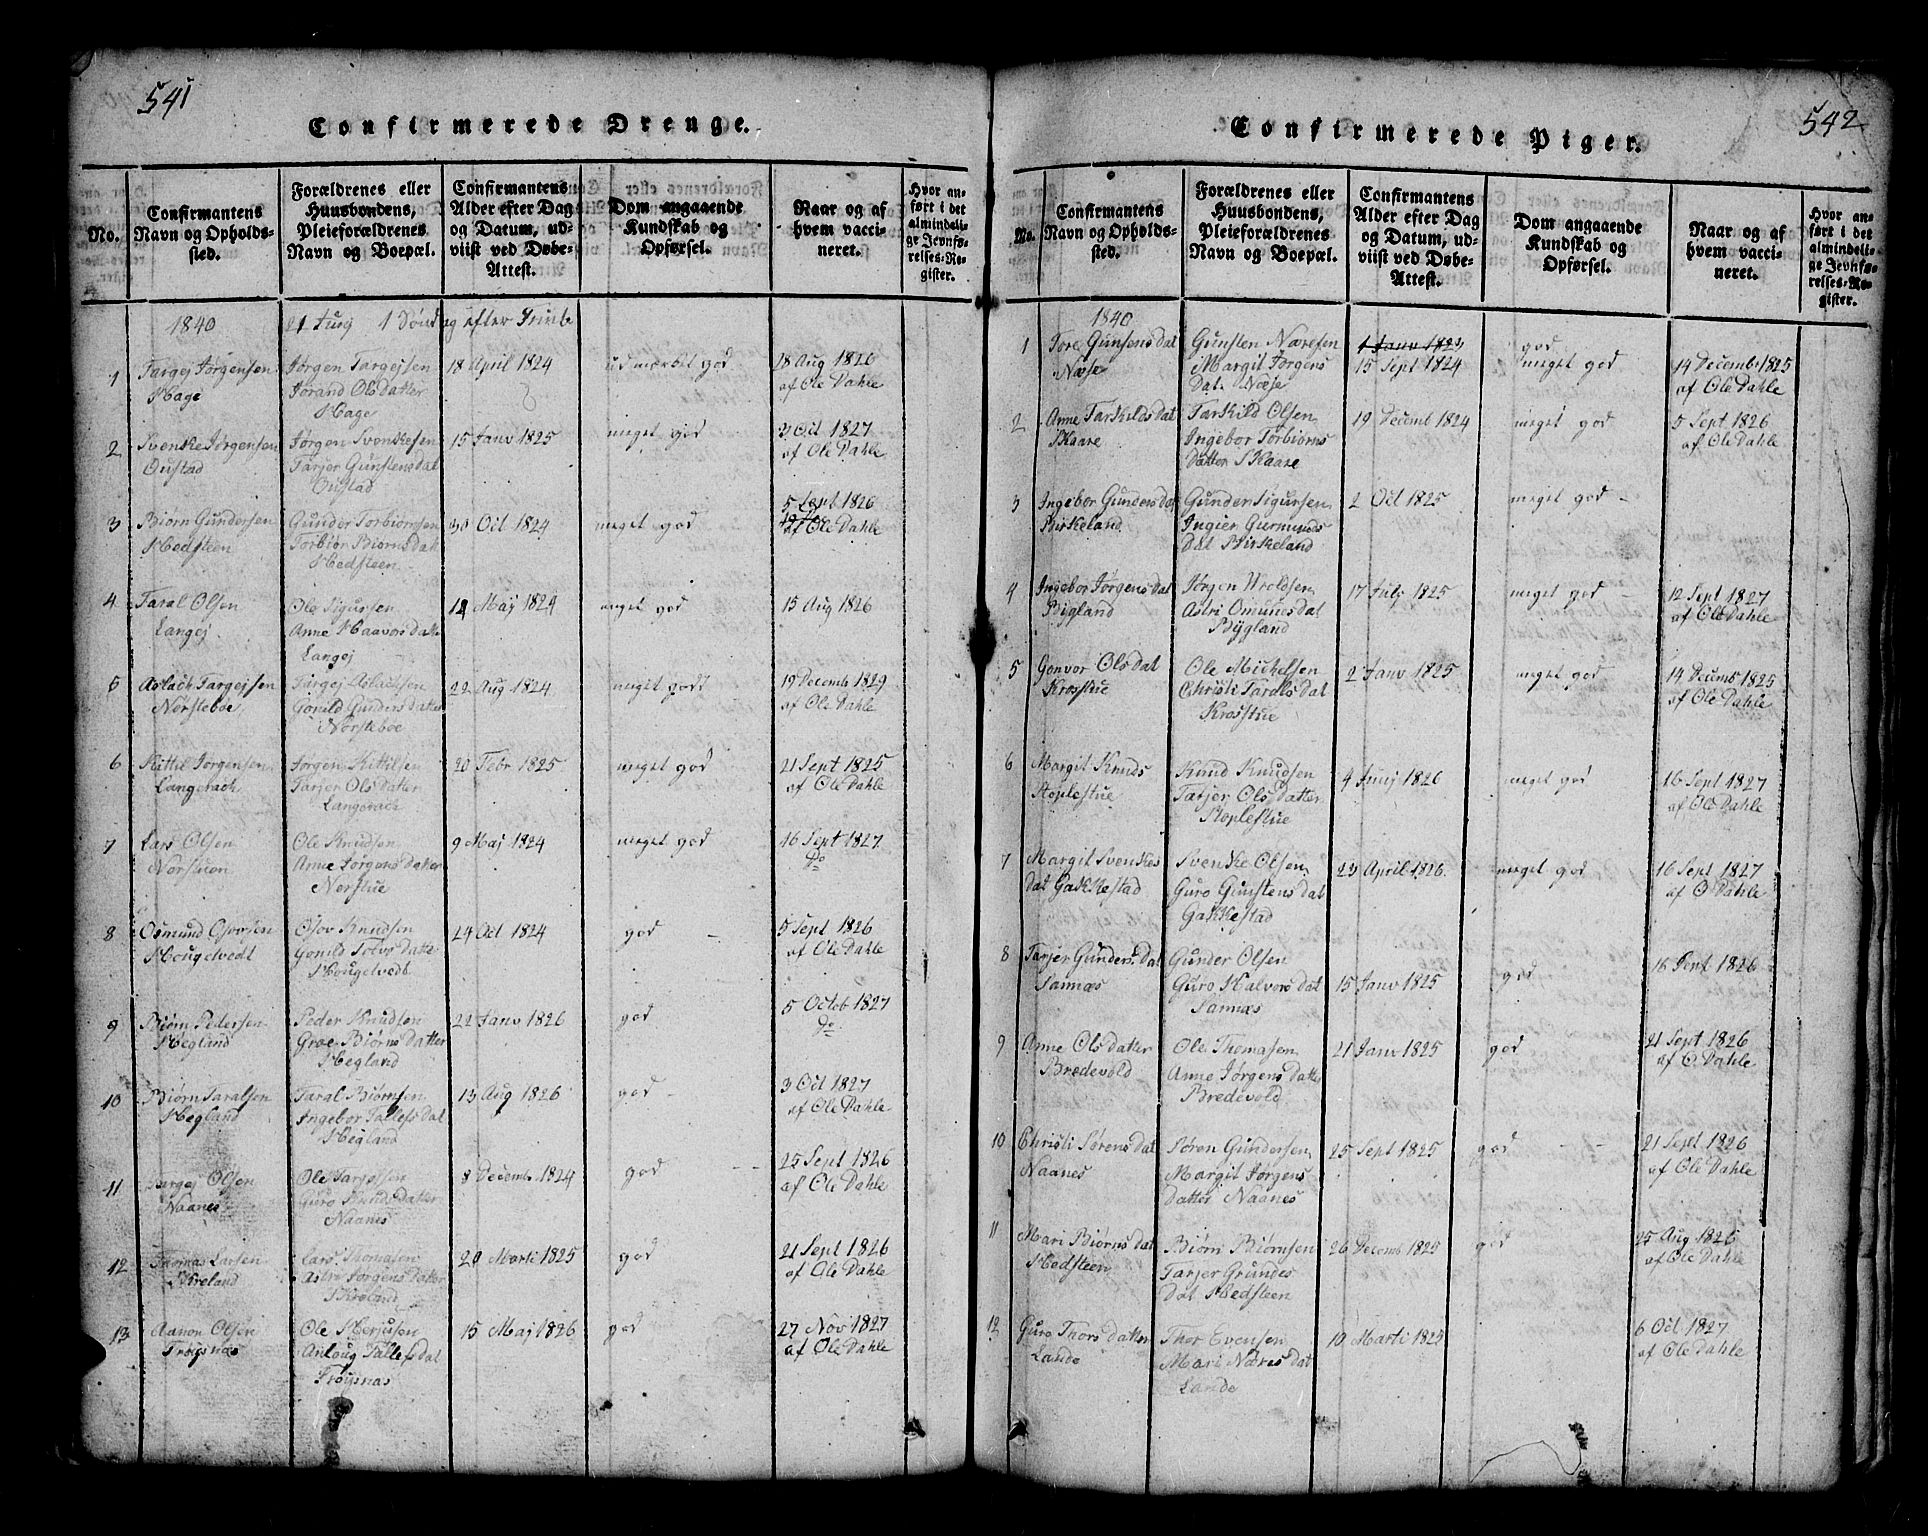 541
Confirmerede Drenge.
No.
Confirmantens
Navn og Opholds-
sted.
Forældrenes eller
Huusbondens,
Pleieforældrenes
Navn og Boepæl.
Confirmantens
Alder efter Dag
og Datum, ud-
viist ved Døbe-
Attest.
Dom angaaende
Kundskab og
Opførsel.
Naar og af
hvem vacci-
neret.
Hvor an-
ført i det
almindeli-
ge Jevnfø-
relses-Re-
gister.
1840 21 Junj 1 Søndag efter Trinit
1 Targej Jørgensen Hage
Jørgen Targejsen
Jorand Olsdatter
Hage
18 April 1824
udmærket god
18 Aug 1826
af Ole Dahle
2 Svenke Jørgensen
Oustad
Jørgen Svenkesen
Tarjer Gunstensdat
Oustad
15 Janv 1825
meget god
3 Oct 1827
af Ole Dahle
3 Biørn Gundersen
Hedsteen
Gunder Torbiørnsen
Torbior Biørnsdat
Hedsteen
30 Oct 1824
meget god
5 Sept 1826
af Ole Dahle
4 Taral Olsen
Langej
Ole Sigursen
Anne Haavorsdatte
Langej
12 Maj 1824
meget god
15 Aug 1826
5 Aslach Targejsen
Norsteboe
Targej Aslachsen
Gonild Gundersdatter
Norsteboe
22 Aug 1824
meget godt
19 Decemb 1829
af Ole Dahle
6 Kittil Jørgensen
Langerach
Jørgen Kittilsen
Tarjer Olsdatter
Langerach
20 Febr 1825
meget god
21 Sept 1825
af Ole Dahle
7 Lars Olsen
Norstuen
Ole Knudsen
Anne Jørgensdatter
Norstue
9 Maj 1824
meget god
16 Sept 1827
Do
8 Osmund Osovsen
Hougetvedt
Osov Knudsen
Gonild Torvsdatte
Hougetvedt
24 Oct 1824
god
5 Sept 1826
af Ole Dahle
9 Biørn Pedersen
Hegland
Peder Knudsen
Groe Biørnsdatter
Hegland
22 Janv 1826
god
5 Octob 1827
Do
10 Biørn Taralsen
Hegland
Taral Biørnsen
Ingebor Tallefsdat
Hegland
13 Aug 1826
god
3 Oct 1827
af Ole Dahle
11 Targej Olsen
Naanes
Ole Tarjejsen
Guro Knudsdatter
Naanes
8 Decemb 1824
god
25 Sept 1826
af Ole Dahle
12 Thomas Larsen
Skreland
Lars Thomasen
Astri Jørgensdatter
Skreland
20 Marti 1825
god
21 Sept 1826
af Ole Dahle
13 Aanon Olsen
Froysnas
Ole Herjusen
Anloug Tallefsdat
Froysnas
15 Maj 1826
god
27 Nov 1827
af Ole Dahle
542
Confirmerede Piger.
No.
Confirmantens
Navn og Opholds-
sted.
Forældrenes eller
Huusbondens,
Pleieforældrenes
Navn og Boepæl.
Confirmantens
Alder efter Dag
og Datum, ud-
viist ved Døbe-
Attest.
Dom angaaende
Kundskab og
Opførsel.
Naar og af
hvem vacci-
neret.
Hvor an-
ført i det
almindeli-
ge Jevnfø-
relses-Re-
gister.
1840
1 Tore Gunsensdat
Næse
Gunsten Næresen
Margit Jørgens
Dat. Næse
1 Janv 1824
15 Sept 1824
god
meget god
14 Decemb 1825
af Ole Dahle
2 Anne Tarkildsdat
Skaare
Tarkild Olsen
Ingebor Torbiørns
Datter Skaare
19 Decemb 1824
meget god
5 Sept 1826
af Ole Dahle
3 Ingebor Gundersdat
Birkeland
Gunder Sigursen
Ingier Gurmunds
Dat Birkeland
2 Oct 1825
meget god
4 Ingebor Jørgensdat
Bigland
Jørgen Aroldsen
Astri Omunesdat
Bygland
17 July 1825
meget god
12 Sept 1827
af Ole Dahle
5 Gonvor Olsdat
Krosstue
Ole Mickelsen
Christi Tarolsdat
Krosstue
2 Janv 1825
meget god
14 Decemb 1825
af Ole Dahle
6 Margit Knuds
Stoplestue
Knud Knudsen
Tarjer Olsdatter
Stoplestue
4 Junj 1826
meget god
16 Sept 1827
af Ole Dahle
7 Margit Svenkes
dat Gakkestad
Svenke Olsen
Guro Gunstensdat
Gakkestad
23 April 1826
meget god
16 Sept 1827
af O Dahle
8 Tarjer Gundersdat
Sannæs
Gunder Olsen
Guro Halvorsdat
Sannæs
15 Janv 1825
god
16 Sept 1826
9 Anne Olsdatter
Bredevold
Ole Thomasen
Anne Jørgensdatte
Bredevold
21 Janv 1825
god
21 Sept 1826
af O Dahle
10 Christi Sørensdat
Naanes
Søren Gundersen
Margit Jørgens
Datter Naanes
25 Sept 1825
god
21 Sept 1826
af Ole Dahle
11 Mari Biørnsdat
Hedsteen
Biørn Biørnsen
Tarjer Grundes
Dat Hedsteen
26 Decemb 1825
god
25 Aug 1826
af Ole Dahle
12 Guro Thorsdatter
Lande
Thor Evensen
Mari Næresdat
Lande
10 Marti 1825
god
6 Oct 1827
af Ole Dahle